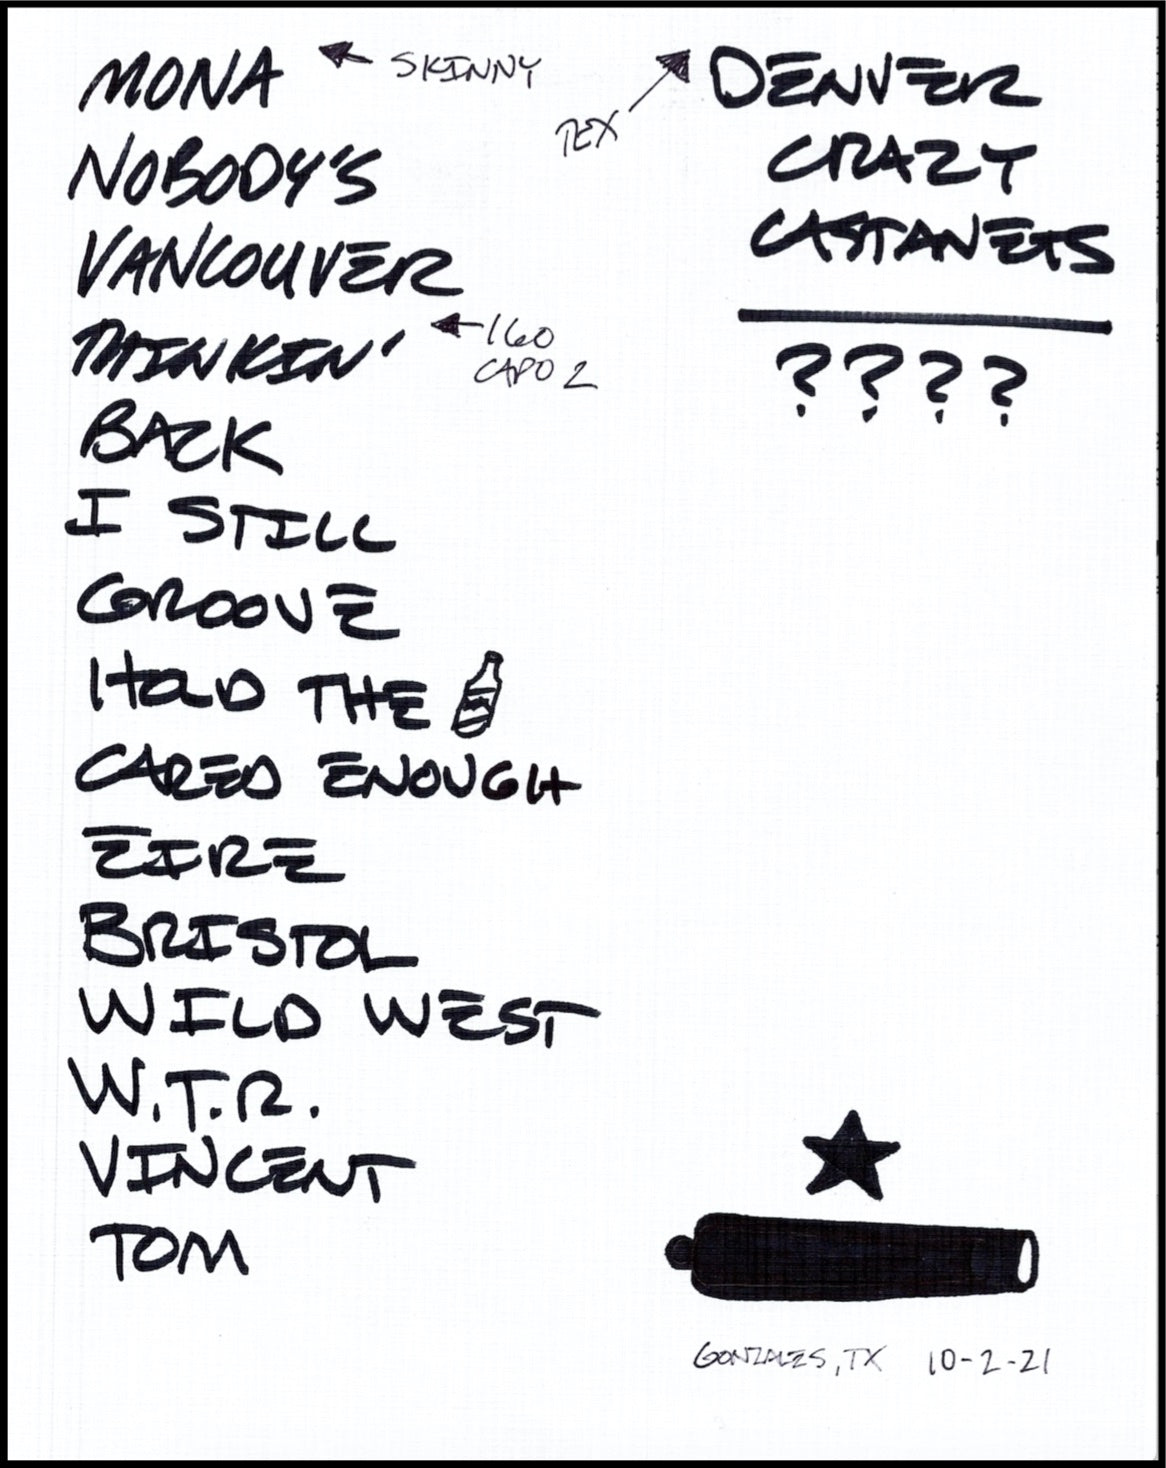 MONA
SKINNY
NOBODY'S
VANCOUVER
THINKIN'
160
CAPO 2
BACK
I STILL
GROOVE
HOLD THE
CARED ENOUGH
EIRE
BRISTOL
WILD WEST
W.T.R.
VINCENT
TOM
DENVER
TEX
CRAZY
CASTANETS
????
GONZALES, TX 10-2-21